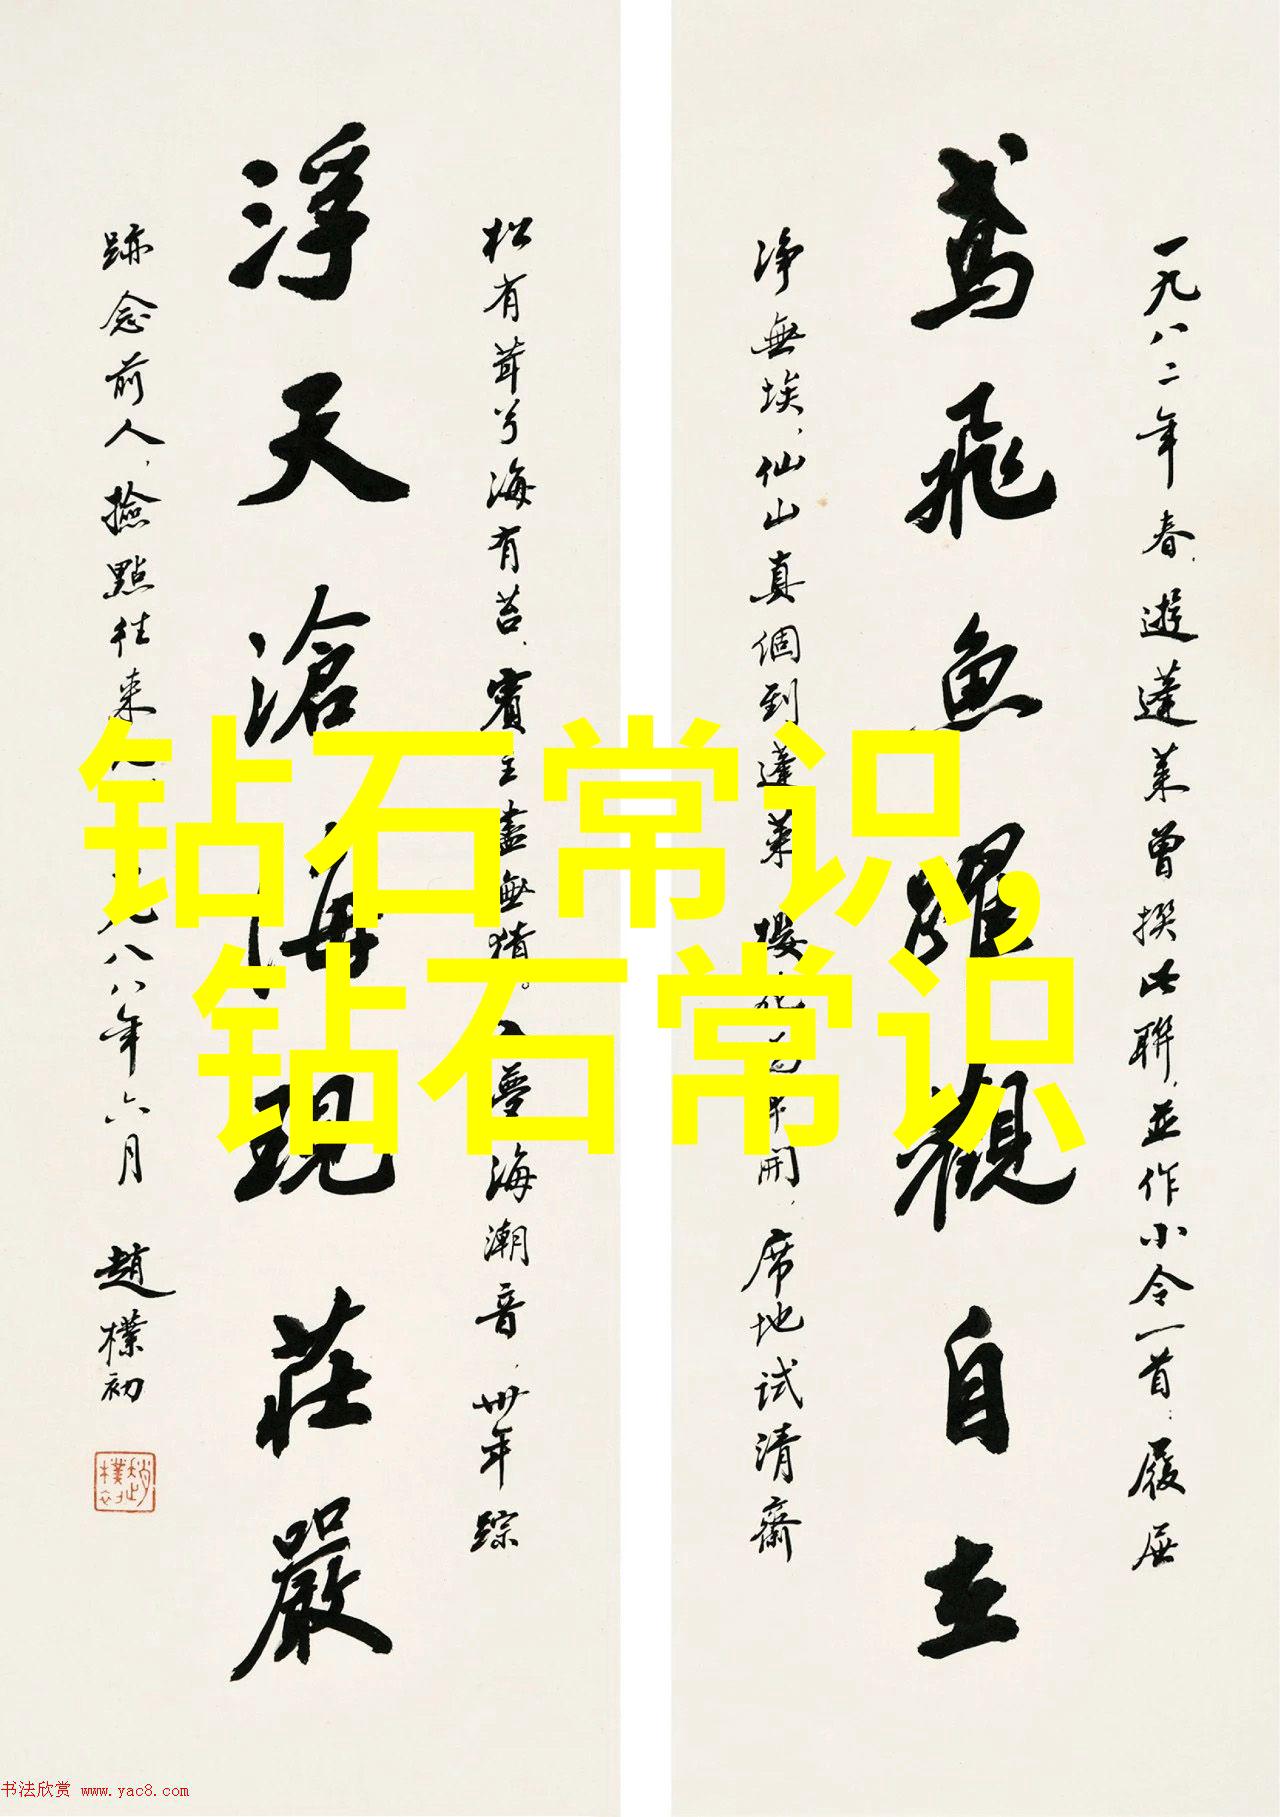 一九八二年春,遊蓬萊曾撰此聯,並作小令一首:履屐
鳶飛魚躍觀自在
淨無埃,仙山真個到蓬萊 櫻 開,席地試清齋
松有茸兮海有苔,賓主盡無猜。入夢海潮音,卅年踪
浮天滄海現莊嚴
跡念前人,撿點往來 九八八年六月 趙樸初
趙樸初
钻石常识,
钻石常识
书法欣赏 www.yac8.com